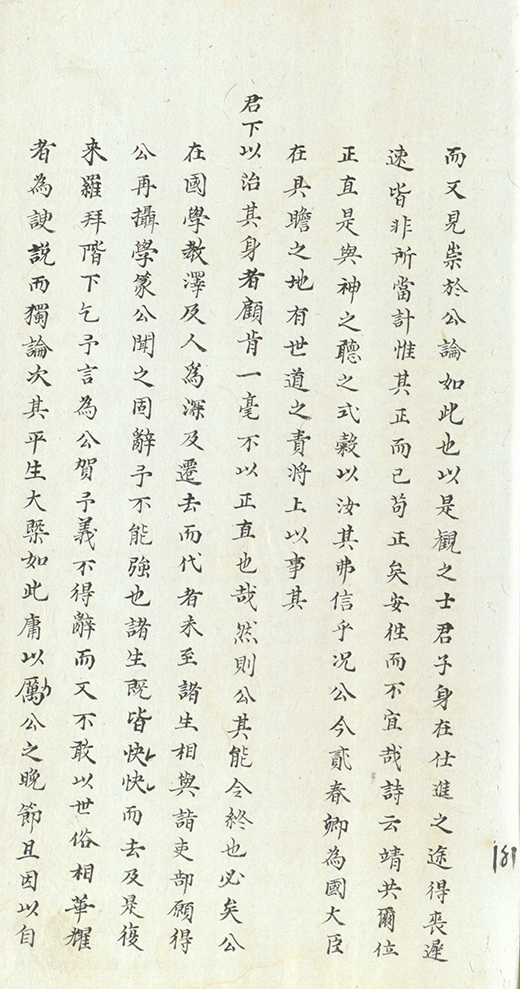 而又見崇於公論如此也以是觀之士君子身在仕進之途得喪遲
速皆非所當計惟其正而已苟正矣安徃而不宜哉詩云靖共爾位
正直是與神之聽之式穀以汝其弗信乎况公今貳春卿為國大臣
在具瞻之地有世道之責將上以事其
君下以治其身者顧肯一毫不以正直也哉然則公其能令終也必矣公
在國學教澤及人為深及遷去而代者未至諸生相與詣吏部願得
公再攝學篆公聞之固辭予不能強也諸生既皆怏怏而去及是復
来羅拜階下乞予言為公賀予義不得辭而又不敢以世俗相華耀
者為諛説而獨論次其平生大槩如此庸以勵公之晚節且因以自